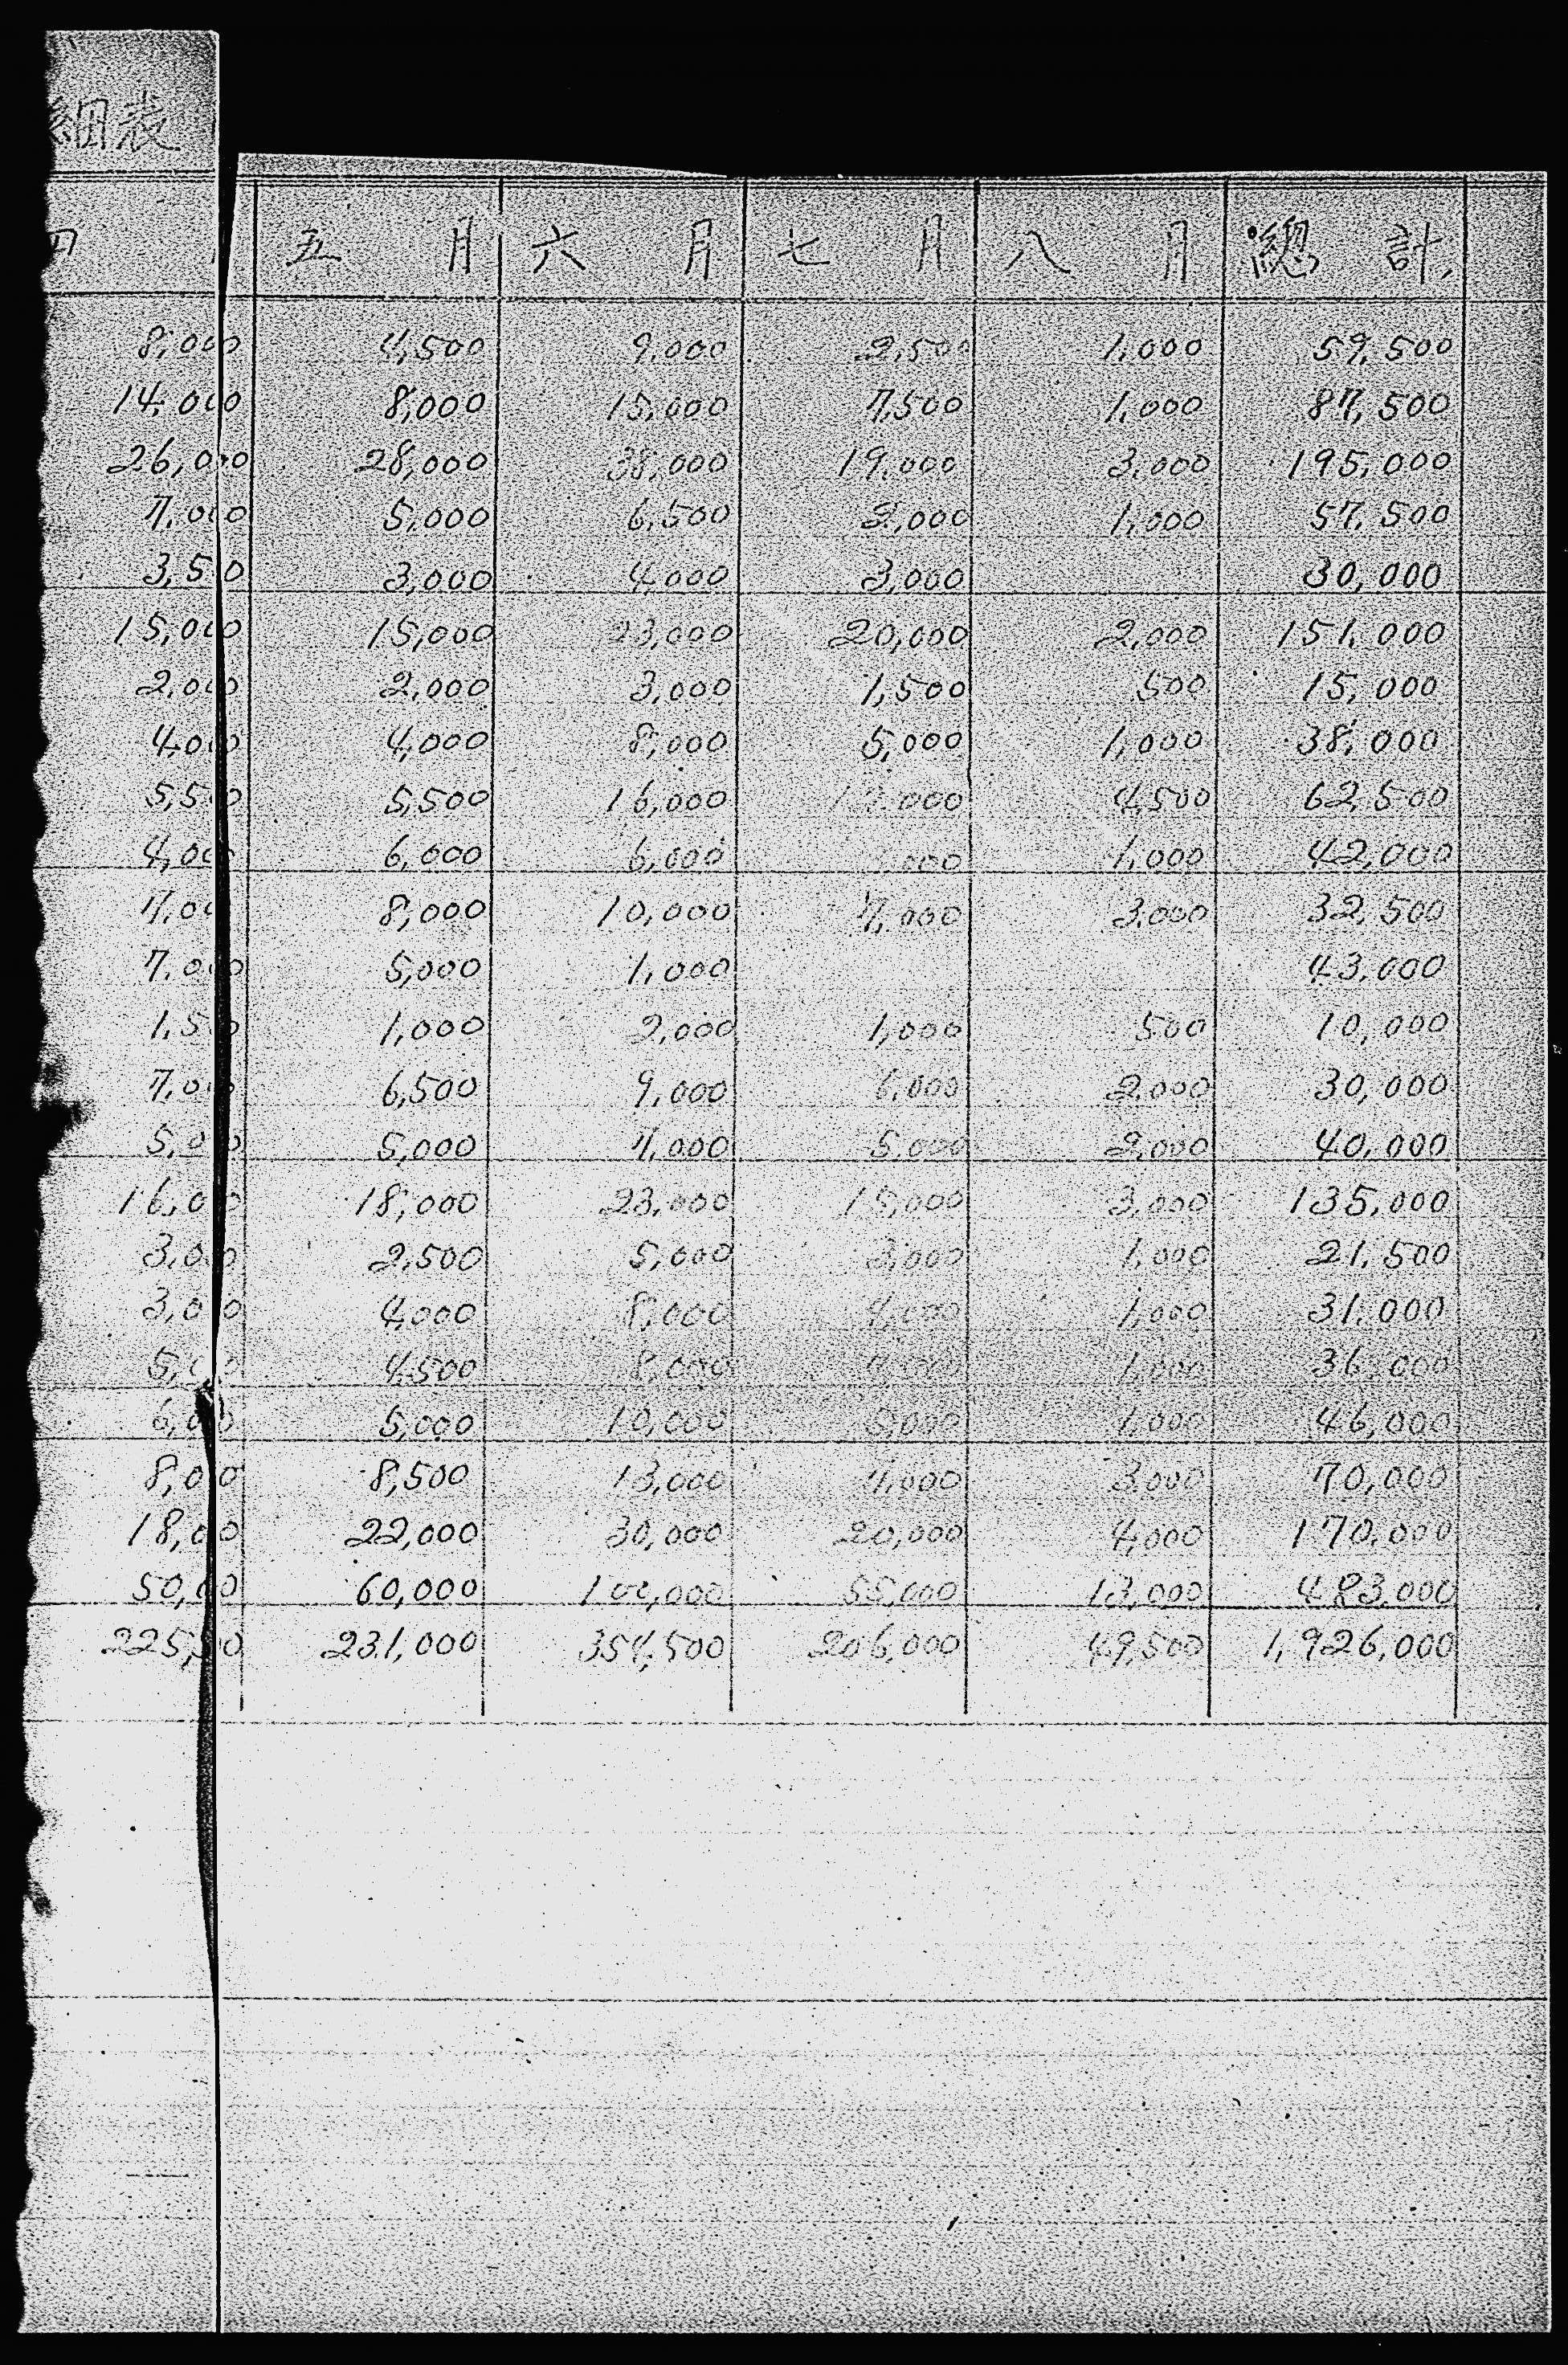 細表
四 五月 六月 七月 八月 總計
8,000 4,500 9,000 2,500 1,000 59,500
14,000 8,000 15,000 7,500 1,000 87,500
26,000 28,000 38,000 19,000 3,000 195,000
7,000 5,000 6,500 2,000 1,000 57,500
3,500 3,000 4,000 3,000 30,000
15,000 15,000 23,000 20,000 2,000 151,000
2,000 2,000 3,000 1,500 500 15,000
4,000 4,000 8,000 5,000 1,000 38,000
5,500 5,500 16,000 4,500 62,500
4,000 6,000 6,000 1,000 42,000
7,000 8,000 10,000 7,000 3,000 32,500
7,000 5,000 1,000 43,000
1,500 1,000 2,000 1,000 500 10,000
7,000 6,500 9,000 6,000 2,000 30,000
5,000 5,000 7,000 5,000 2,000 40,000
16,000 18,000 23,000 15,000 3,000 135,000
3,000 2,500 5,000 3,000 1,000 21,500
3,000 4,000 8,000 4,000 1,000 31,000
5,000 4,500 8,000 1,000 36,000
6,000 5,000 10,000 5,000 1,000 46,000
8,000 8,500 13,000 3,000 70,000
18,000 22,000 30,000 20,000 4,000 170,000
50,000 60,000 100,000 55,000 13,000 483,000
231,000 354,500 206,000 49,500 1,926,000